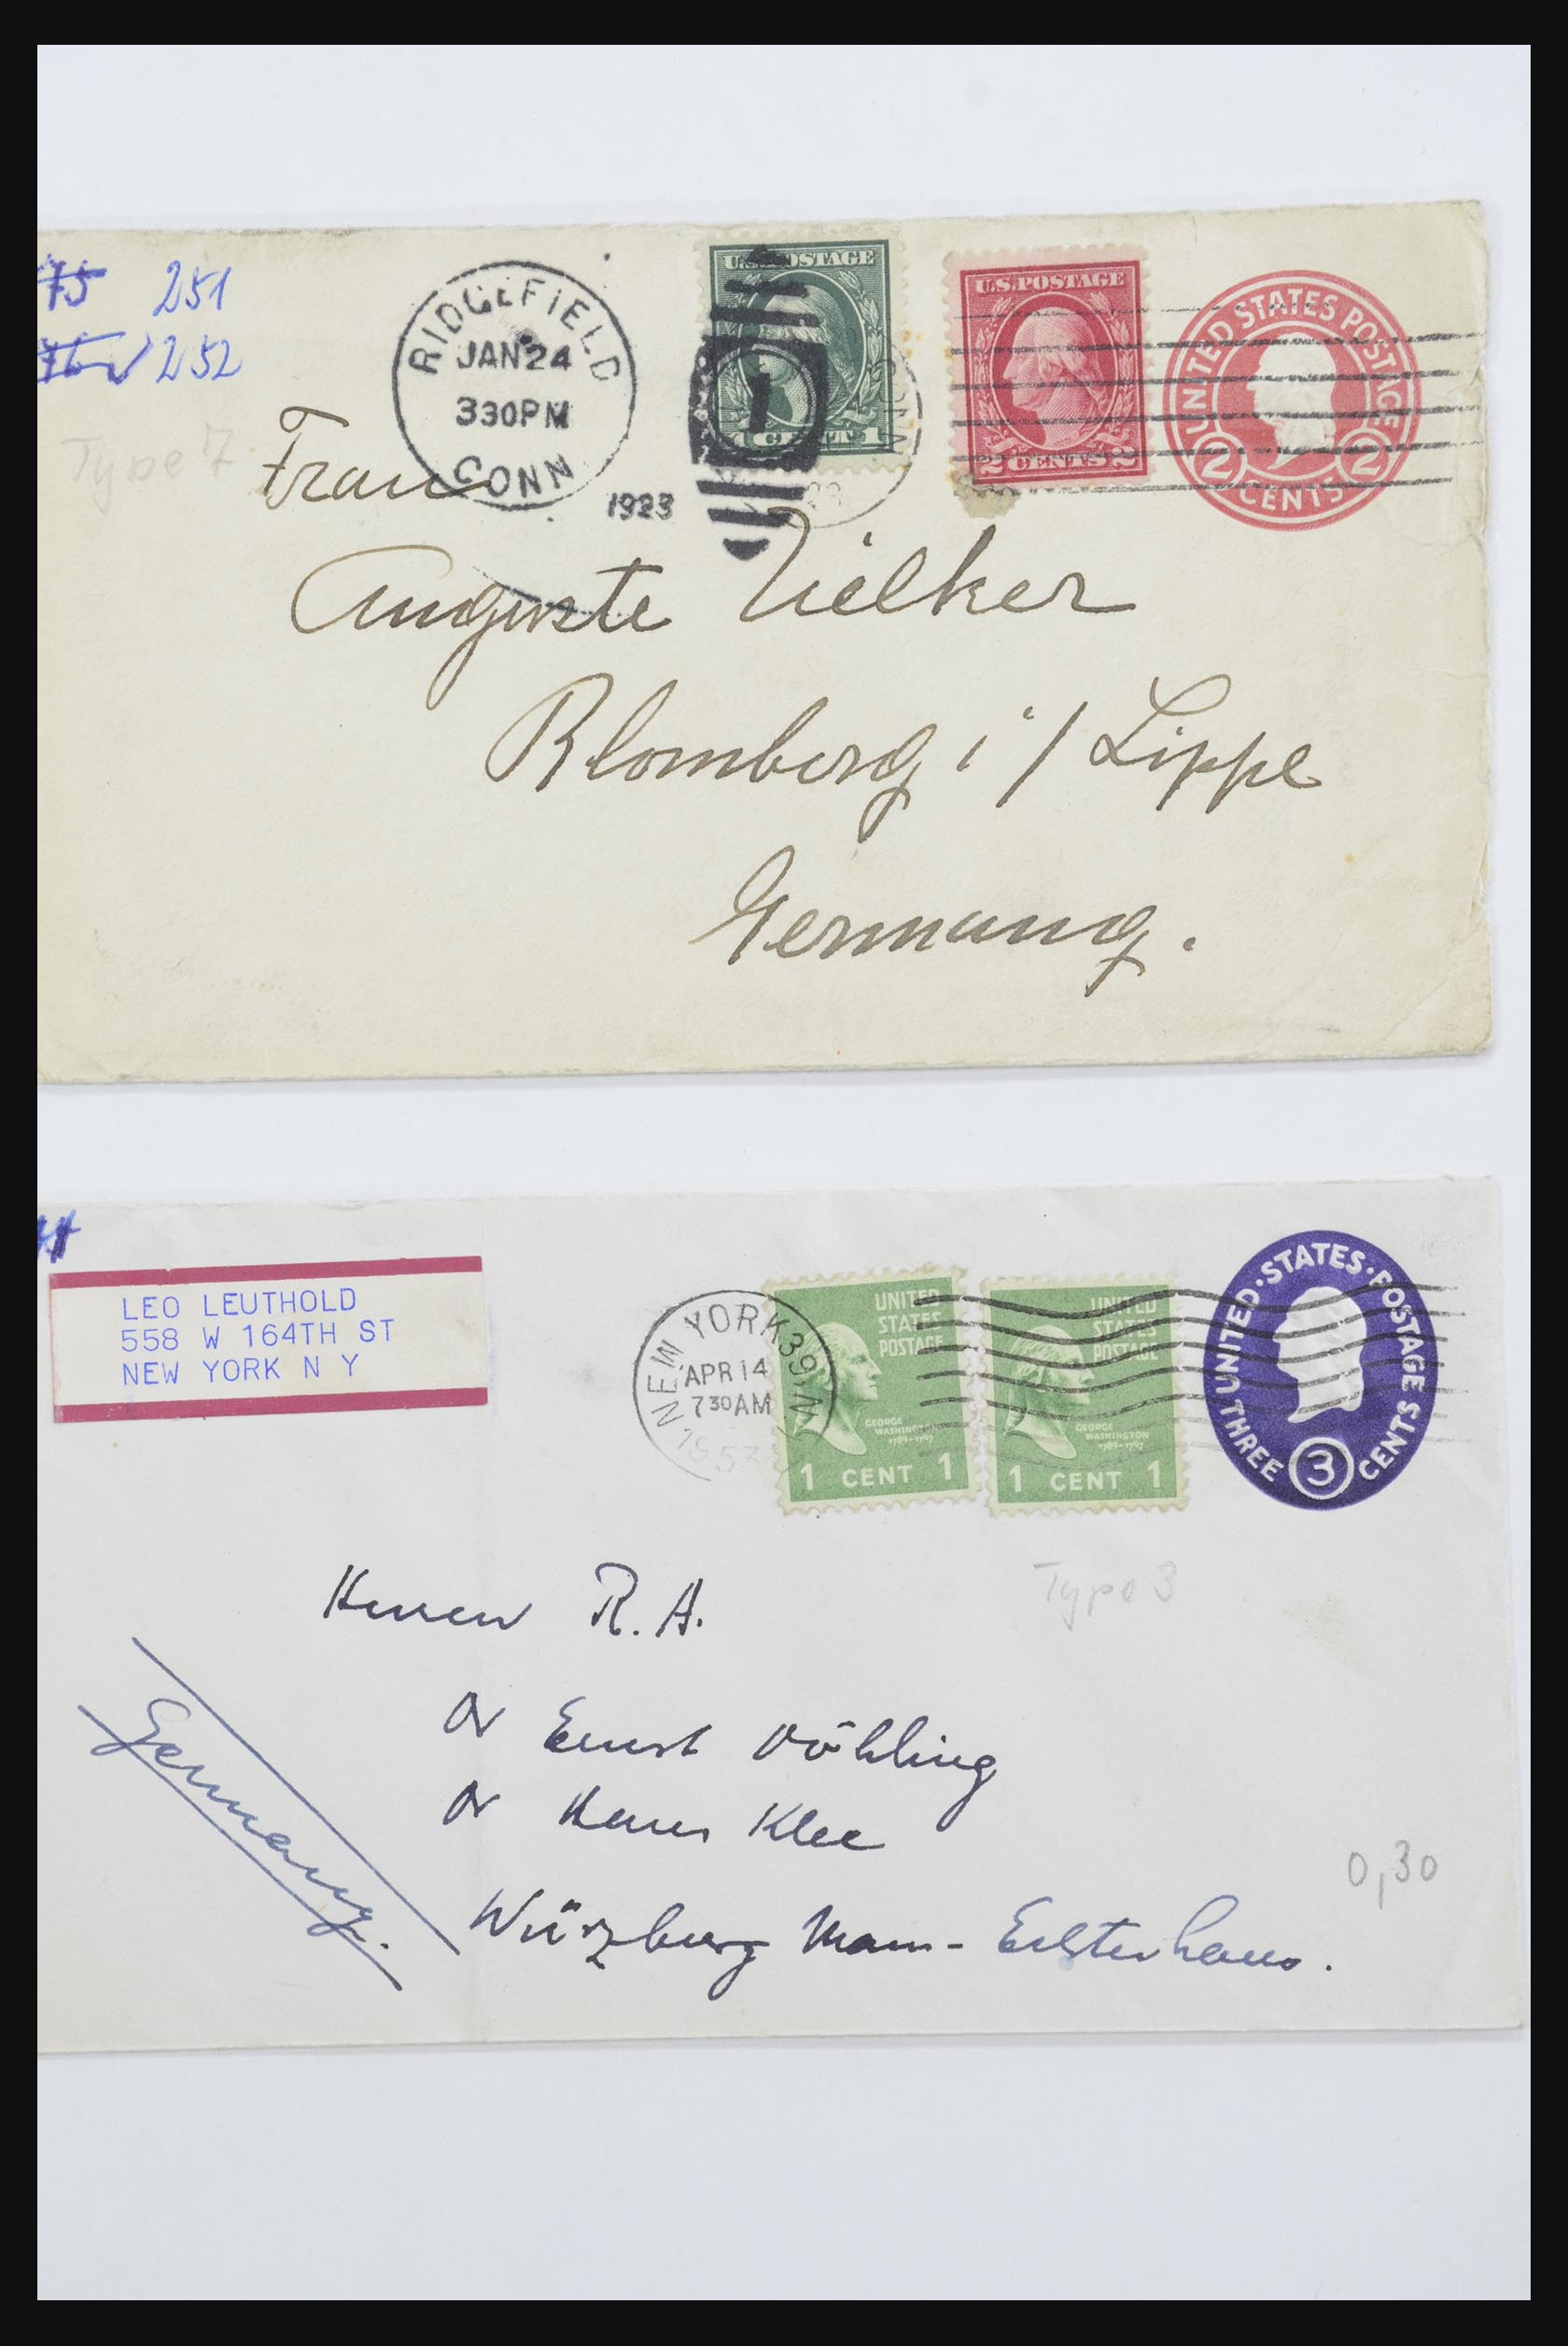 75 251
252
Type 7
RIDGEFIELD
JAN 24
330PM
CONN
1923
U.S. POSTAGE
1 CENT 1
1
CONN
U.S. POSTAGE
2 CENTS 2
UNITED STATES POSTAGE
2 2
CENTS
Frau
Auguste Vielker
Blomberg i/ Lippe
Germany.
LEO LEUTHOLD
558 W 164TH ST
NEW YORK N Y
NEW YORK 39, N
APR 14
730AM
195
UNITED
STATES
POSTAGE
GEORGE
WASHINGTON
1789-1797
1 CENT 1
UNITED
STATES
POSTAGE
GEORGE
WASHINGTON
1789-1797
1 CENT 1
UNITED·STATES·POSTAGE
THREE 3 CENTS
Type 3
Herren R. A.
Dr Ernst Vöhling
Dr Hans Klee
Germany.
0,30
Würzburg Main-